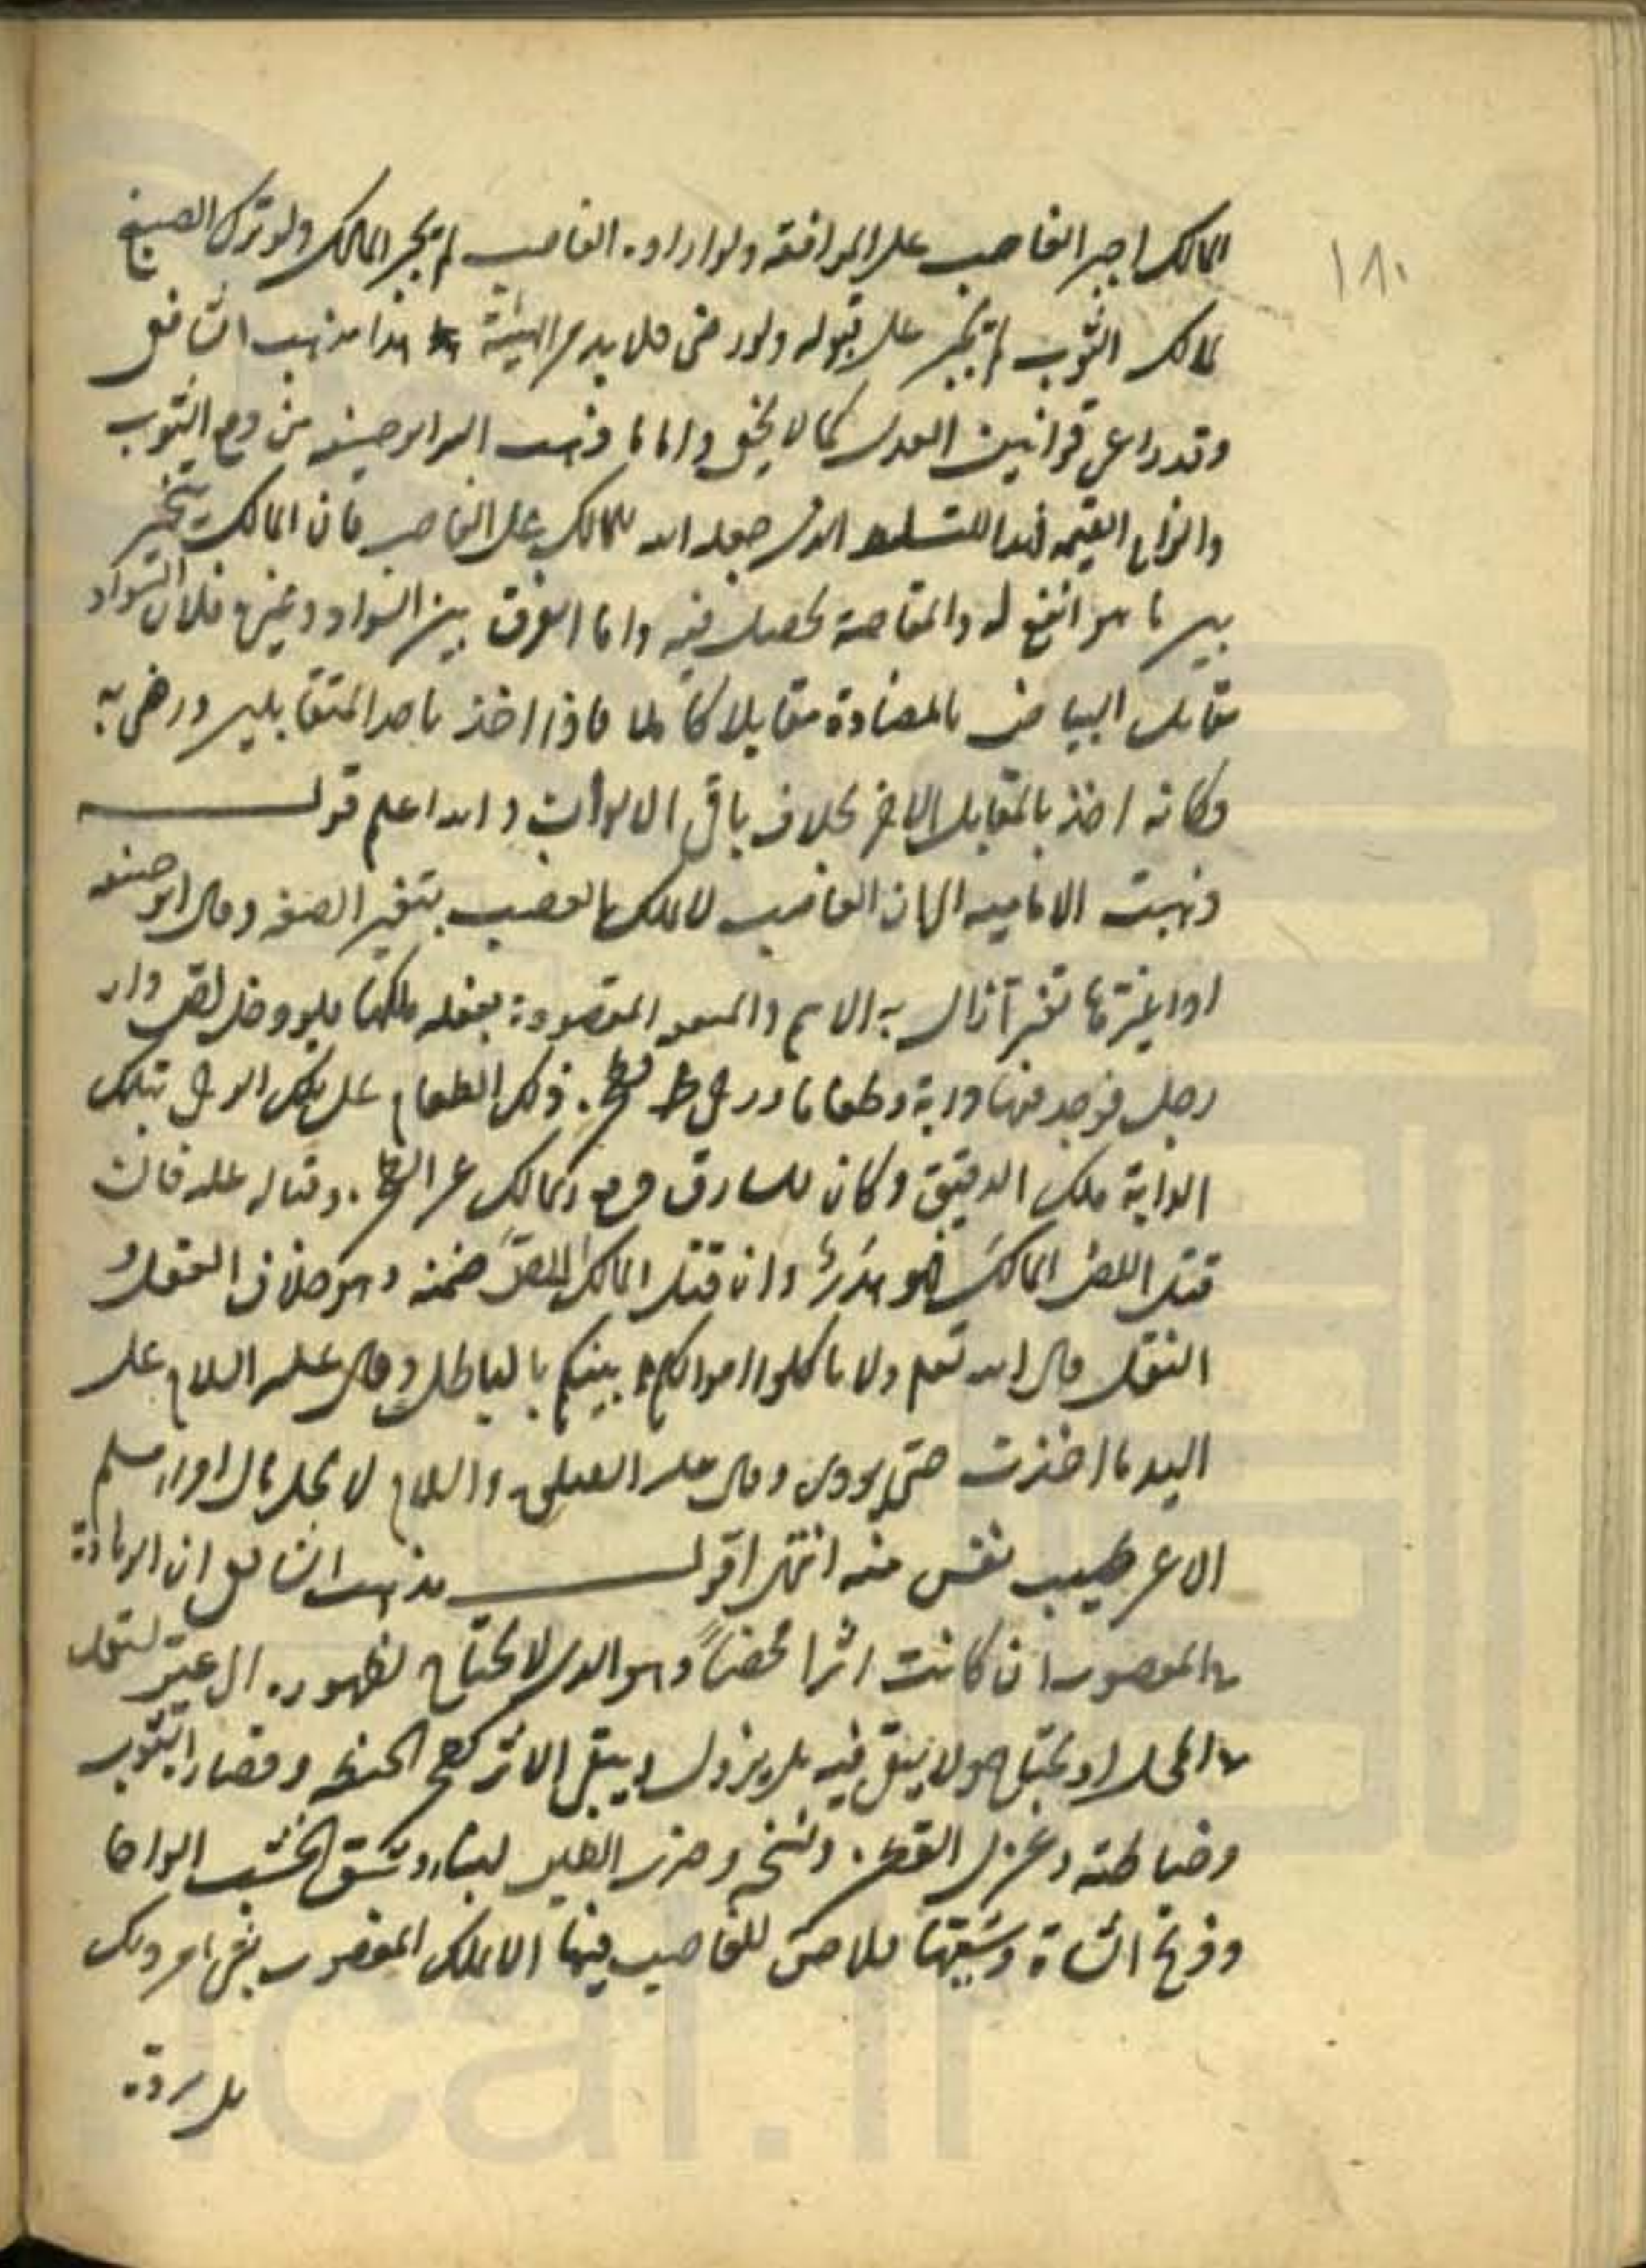 ١٨٠
المالك اجبر الغاصب على الموافقة ولو اراده الغاصب لم يجبر المالك ولو ترك الصبغ
لمالك الثوب لم يجبر على قبوله ولو رضى فلا بد من الهبة هذا مذهب الشافعى
وقدره على قوانين العدل كما لا يخفى واما ما ذهب اليه ابو حنيفه من دفع الثوب
والزام القيمه فهذا للتسلط الذى جعله الله للمالك على الغاصب فان المالك يتخير
بين ما هو انفع له والمقاصة تحصل فيه واما الفرق بين السواد وغيره فلان السواد
مقابل البياض بالمضادة مقابلا كاملا فاذا اخذ باحد المتقابلين ورضى به
وكانه اخذ بالمقابل الاخر بخلاف باقى الالوان والله اعلم قوله
ذهبت الاماميه الى ان الغاصب لا يملك الغصب بتغير الصفه وقال ابو حنيفه
اذا غيرها تغيرا زال به الاسم والمنفعة المقصودة بفعله ملكها فلو دخل لص دار
رجل فوجد فيها دابة وطعاما ورحى فطحن ذلك الطعام على تلك الرحى بتلك
الدابة ملك الدقيق وكان للسارق دفع المالك عن الطحن وقتاله عليه فان
قتل اللص المالك فهو هدر وان قتل المالك اللص ضمنه وهو خلاف العقل و
النقل قال الله تعالى ولا تاكلوا اموالكم بينكم بالباطل وقال عليه السلام على
اليد ما اخذت حتى تؤدى وقال عليه الصلوة والسلام لا يحل مال امرء مسلم
الا عن طيب نفس منه انتهى اقول مذهب الشافعى ان الزيادة
فى المغصوب ان كانت اثرا محضاً وهو الذى لا يحتاج لظهوره الى عين تنتقل
فى المحل او يحتاج ولا يبقى فيه بل يزول ويبقى الاثر كطحن الحنطه وقصارة الثوب
وخياطته وغزل القطن ونسجه وضرب الطين لبنا وشق الخشب الواحا
وذبح الشاة وشيها فلا حق للغاصب فيها الا يملك المغصوب بشئ من ذلك
بل يرده